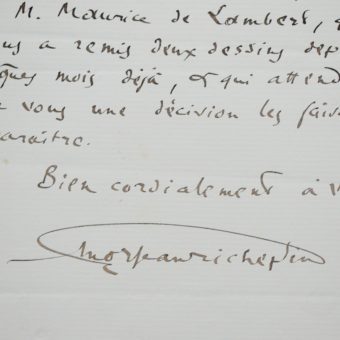 M. Maurice de Lambert, q
us a remis deux dessins dep
ques mois déjà, & qui attend
e vous une décision les fais
araître.
Bien cordialement à v
Jean Richepin